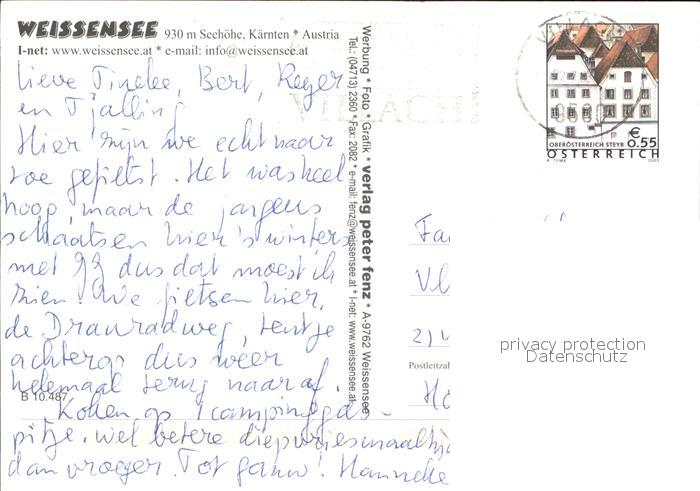 WEISSENSEE 930 m Seehöhe, Kärnten * Austria
I-net: www.weissensee.at * e-mail: info@weissensee.at
Lieve Tineke, Bert, Roger
en Tjalling
Hier zijn we echt naar
toe gefietst. Het was heel
hoog, maar de jongens
schaatsen hier 's winters
met 99 dus dat moest ik
zien. We fietsen hier,
de Drauradweg, tentje
achterop dus weer
helemaal terug naar af.
Koken op 1 campinggas-
pitje. Wel betere diepvriesmaaltij
dan vroeger. Tot gauw! Hanneke
B 10.487
Werbung * Foto * Grafik * verlag peter fenz * A-9762 Weissensee
Tel.: (04713) 2360 * Fax: 2082 * e-mail: fenz@weissensee.at * I-net: www.weissensee.at
VILLACH
€ 0.55
OBERÖSTERREICH STEYR
ÖSTERREICH
A. TUMA 2003
Fa
Vl
Postleitzah
Ho
privacy protection
Datenschutz